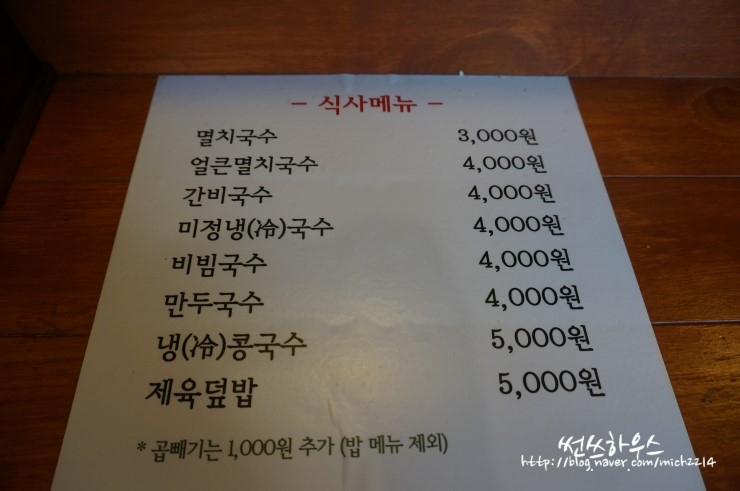 - 식사메뉴 -
멸치국수 3,000원
얼큰멸치국수 4,000원
간비국수 4,000원
미정냉(冷)국수 4,000원
비빔국수 4,000원
만두국수 4,000원
냉(冷)콩국수 5,000원
제육덮밥 5,000원
* 곱빼기는 1,000원 추가 (밥 메뉴 제외)
썬쓰하우스
http://blog.naver.com/mich2214